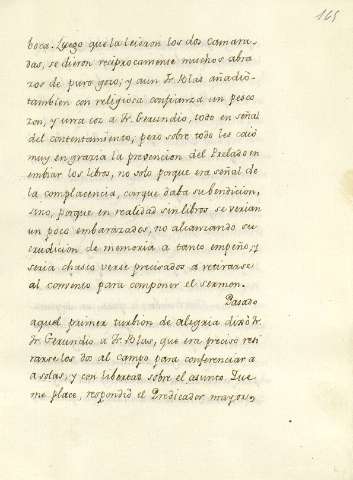 165
boca. Luego que la leieron los dos camara-
das, se dieron reciprocamente muchos abra
zos de puro gozo; y aun fr. Blas añadiò
tambien con religiosa confianza un pesco
zon, y una coz a fr. Gerundio, todo en señal
del contentamiento; pero sobre todo les caiò
muy en gracia la prevencion del Prelado en
embiar los libros, no solo porque era señal de
la complacencia, conque daba su bendicion,
sino, porque en realidad sin libros se verian
un poco embarazados, no alcanzando su
erudicion de memoria a tanto empeño, y
seria chasco verse precisados a retirarse
al convento para componer el sermon.
Pasado
aquel primer turbion de alegria dixo fr.
fr. Gerundio a fr. Blas, que era preciso reti
rarse los dos al campo para conferenciar a
a solas, y con libertad sobre el asunto. Que
me place, respondiò el Predicador mayor,